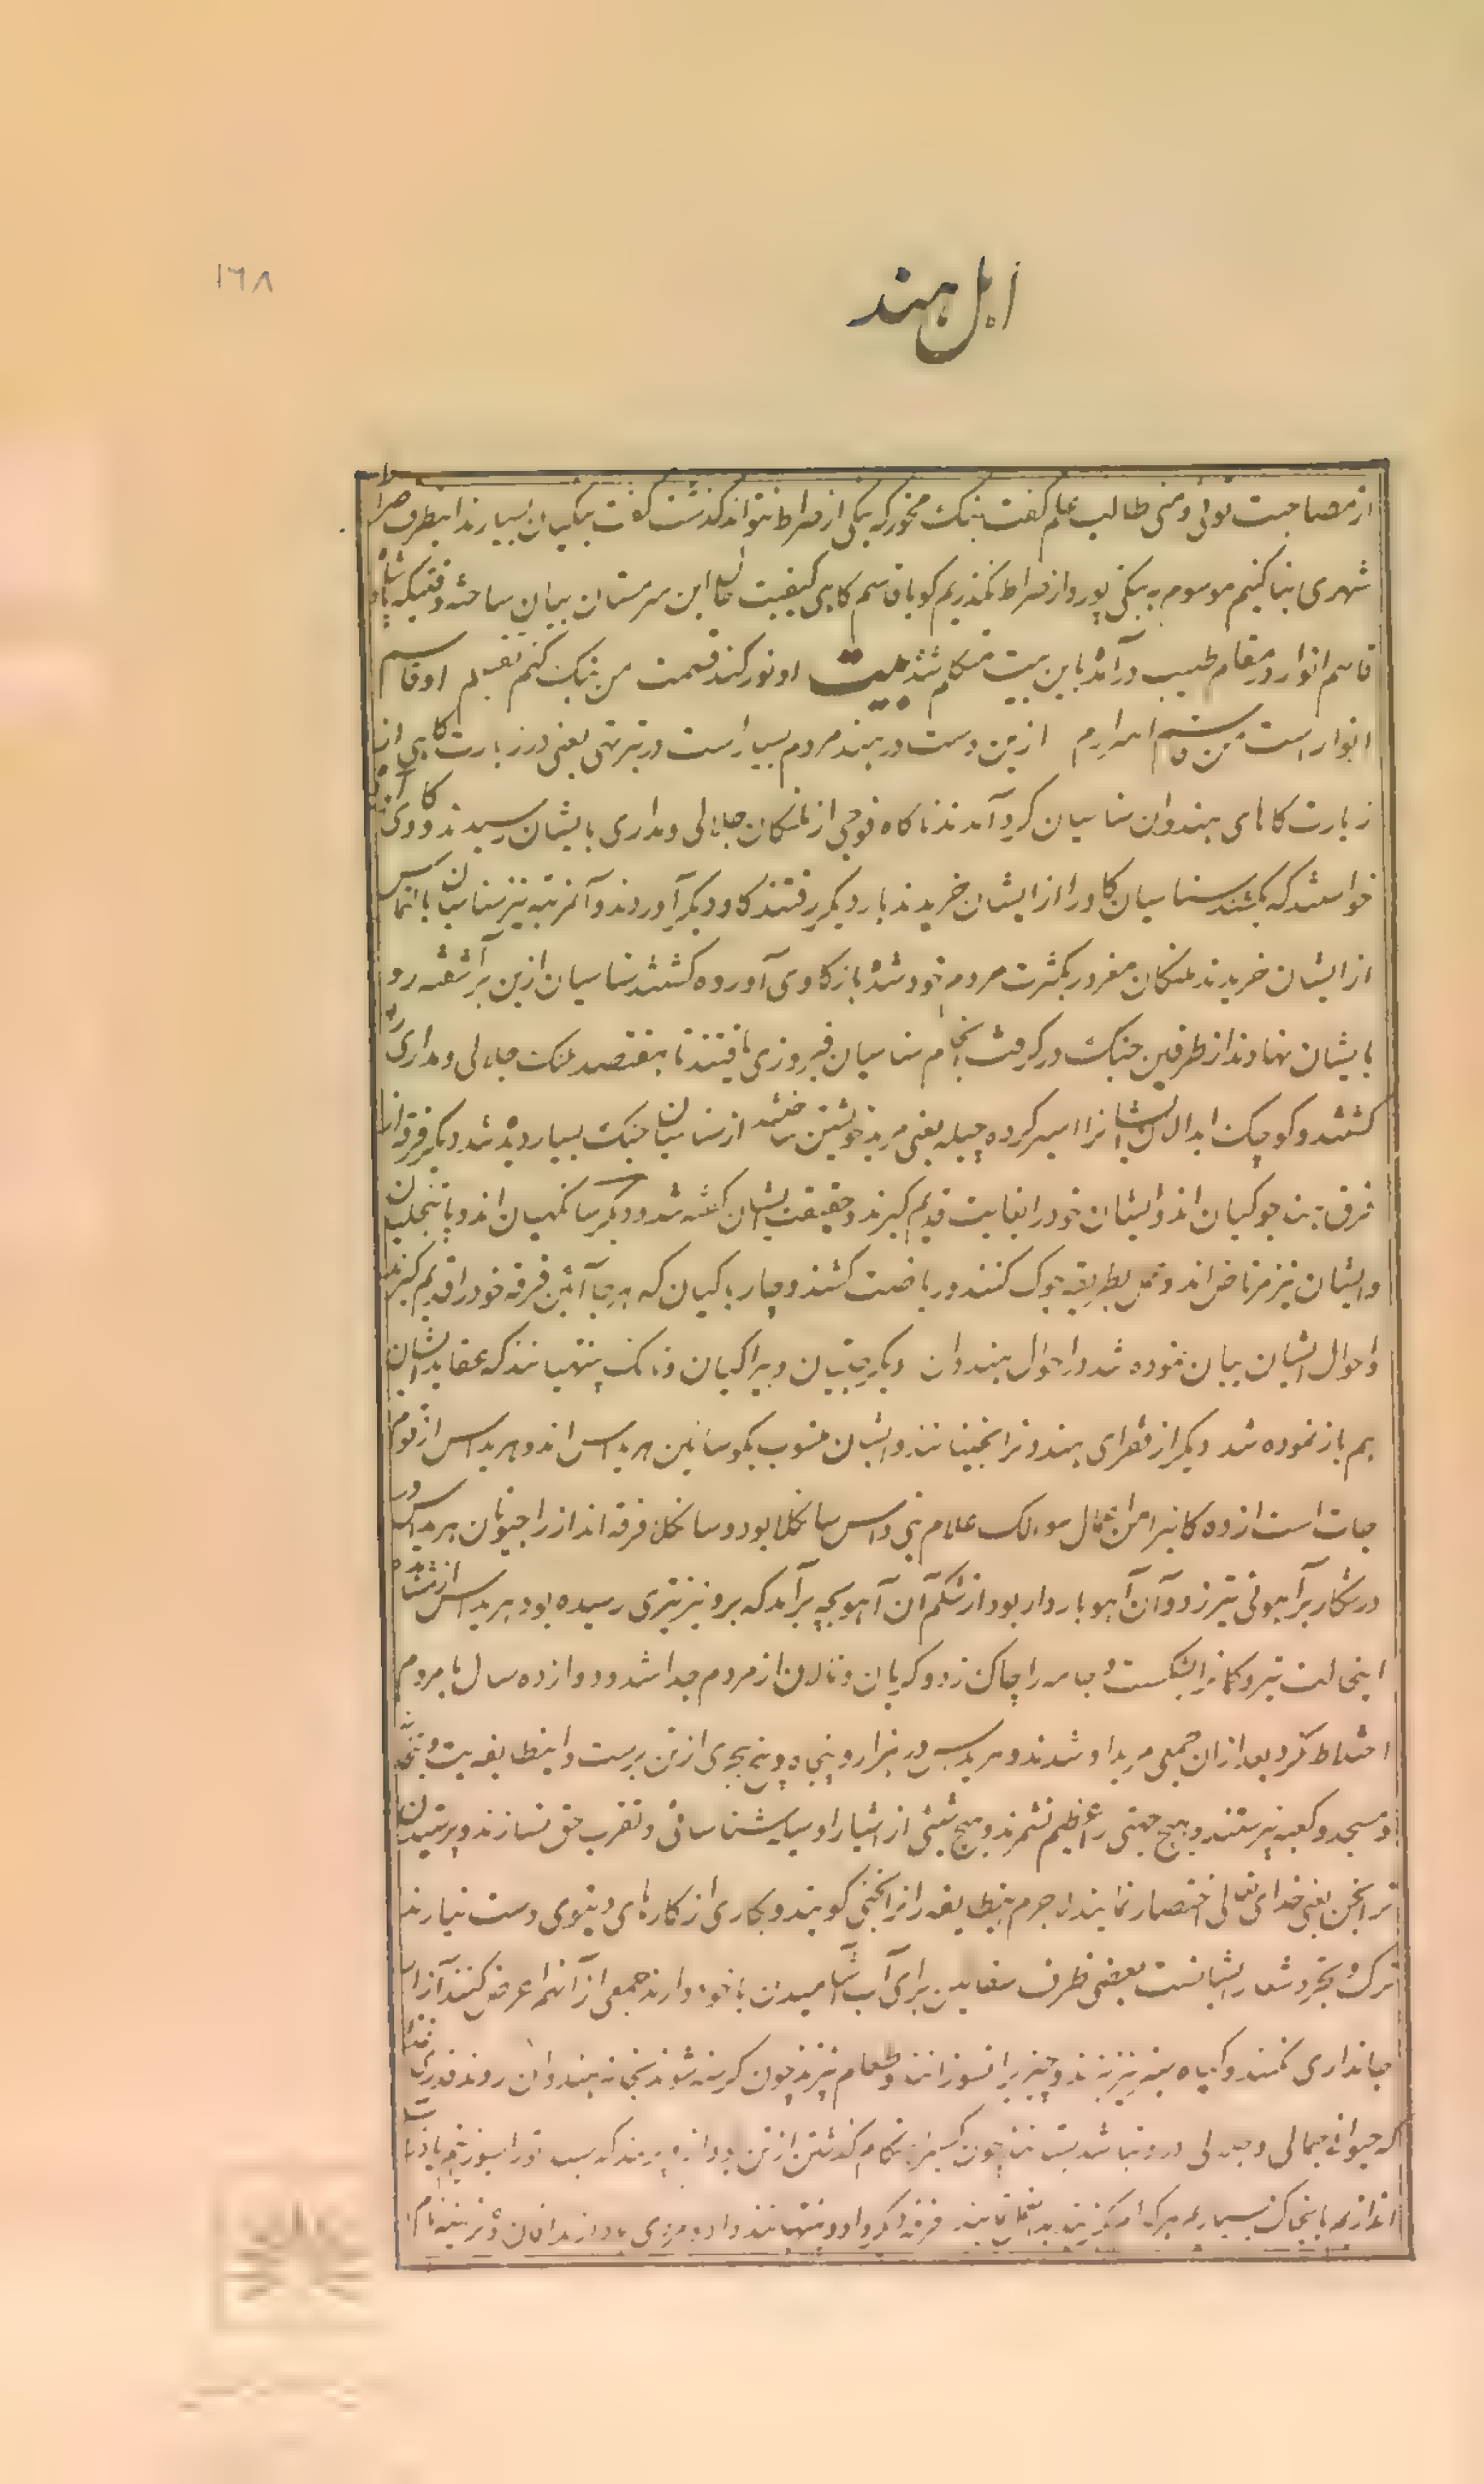 ۱٦۸
اهل هند
از مصاحبت تو لی و منی طالب علم گفت بنک مخور که بنکی از صراط نتواند گذشت گفت بنکیان بسیارند اینطرف صراط
شهری بنا کنیم موسوم به بنکی پور و از صراط نگذریم کویا قاسم کاهی کیفیت حال این سرمستان بیان ساخته وقتیکه
قاسم انوار در مقام طیب در آمده باین بیت متکلم شد بیت او نور کند قسمت من بنک کنم تقسیم او قاسم
انوار است من قاسم اسرارم ازین دست در هند مردم بسیار است در تیرتهی یعنی در زیارت کاهی از
زیارت کاهای هندوان سناسیان کرد آمدند ناکاه فوجی از ملنکان جلالی و مداری بایشان رسیدند و کاوی
خواستند که بکشند سناسیان کاو را از ایشان خریدند بار دیکر رفتند کاو دیکر آوردند و آنمرتبه نیز سناسیان بالتماس
از ایشان خریدند ملنکان مغرور بکثرت مردم خود شده باز کاوی آورده کشتند سناسیان ازین برآشفته رو
بایشان نهادند از طرفین جنک در کرفت انجام سناسیان فیروزی یافتند تا هفتصد ملنک جلالی و مداری را
کشتند و کوچک ابدال ایشانرا اسیر کرده چیله یعنی مرید خویشتن ساختند از سناسیان جنک بسیار دیده شد دیکر فرقه از
فرق هند جوکیان اند و ایشان خود را بغایت قدیم کیرند و حقیقت ایشان کفته شد و دیکر سانکهیان اند و پاتنجلیان
و ایشان نیز مرتاض اند و عمل بطریقه جوک کنند و ریاضت کشند و چارباکیان که هرجا آئین فرقه خود را قدیم کیرند
و احوال ایشان بیان نموده شد و احوال هندوان دیکر جتیان و بیراکیان و نانک پنتهیانند که عقاید ایشان
هم باز نموده شد دیکر از فقرای هند و نرانجنیانند و ایشان منسوب بکوسائین هریداس اند و هریداس از قوم
جات است از ده کانیرا من اعمال غلام نجی داس سانکلا بود و سانکلا فرقه اند از راجپوتان هریداس
در شکار بر آهوئی تیر زد و آن آهو باردار بود از شکم آن آهو بچه برآمد که برو نیز تیری رسیده بود هریداس از مشاهده
اینحالت تیر و کمانرا بشکست و جامه را چاک زد و کریان و نالان از مردم جدا شد و دوازده سال با مردم
اختلاط نکرد بعد از ان جمعی مرید او شدند و هریداس در هزار و پنجاه و پنج هجری از تن برست و اینطایفه بت و بتخانه
و مسجد و کعبه نپرستند و هیچ جهتی را عظیم نشمرند و هیچ شیئی از اشیا را وسیله شناسائی و تقرب حق نسازند و پرستیدن
نرانجن یعنی خدای تعالی اختصار نمایند لاجرم اینطایفه را نرانجنی کویند و بکاری از کارهای دنیوی دست نیارند
ترک و تجرد شعار ایشانست بعضی ظرف سفالین برای آب آشامیدن با خود دارند جمعی از آنهم اعراض کنند آزار
جانداری نکنند و کیاه سبز نیز نزنند و چیزیرا نسوزانند و طعام نپزند چون کرسنه شوند بخانه هندوان روند قدری غذا
که حیوانی جمالی و جلالی درو نباشد بستانند چون کسیرا هنکام گذشتن از تن
اندازیم یا بخاک بسپاریم هرکدام